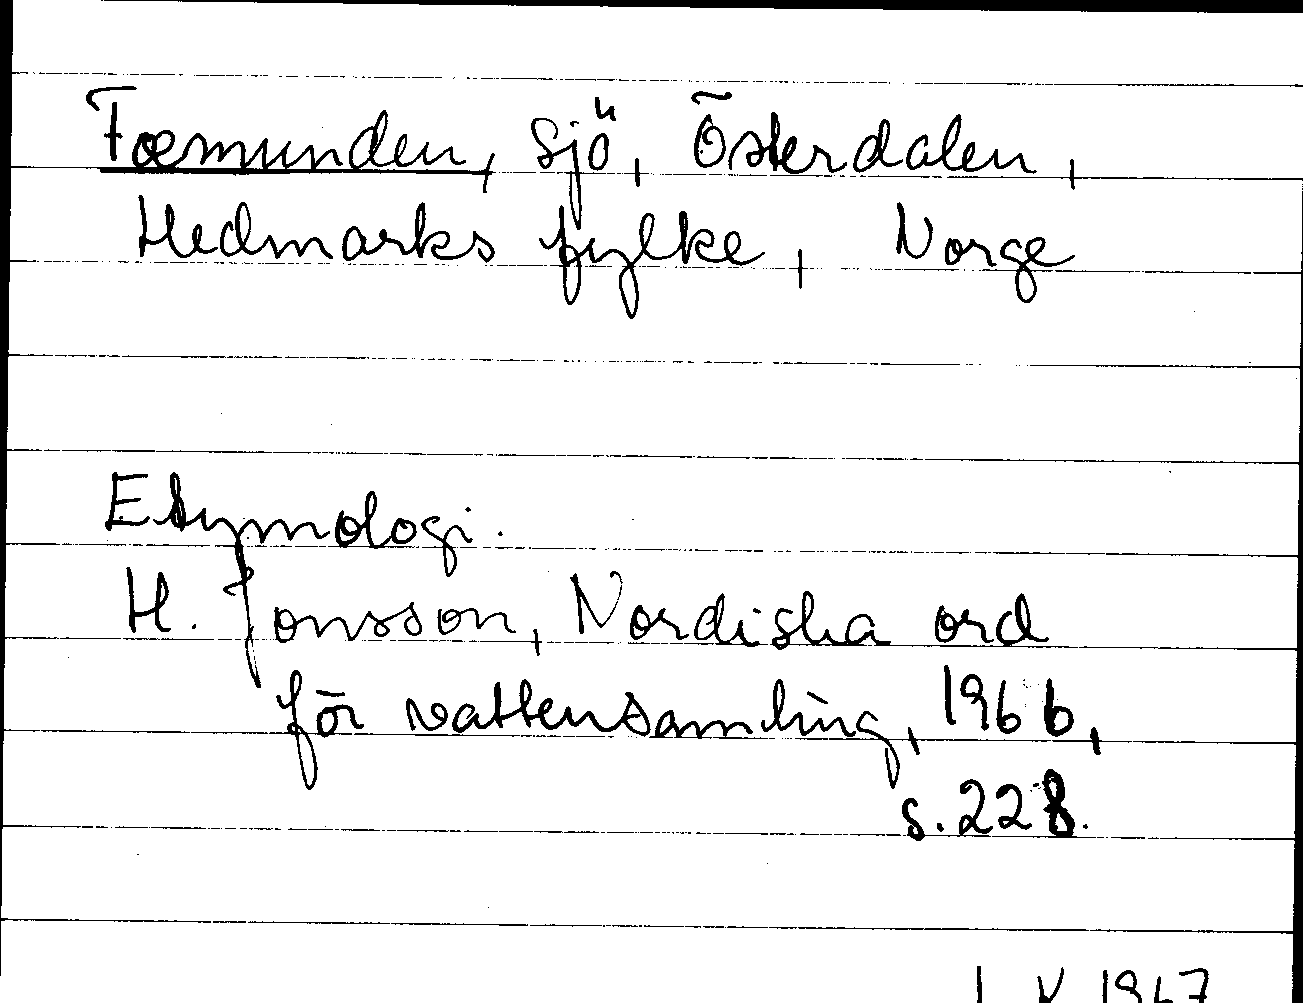 Fæmunden, sjö, Österdalen,
Hedmarks fylke, Norge
Etymologi.
H. Jonsson, Nordiska ord
för vattensamling, 1966,
s. 228.
1967